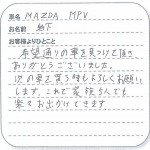 車名 MAZDA MPV
お名前 
お客様よりひとこと
希望通りの車を見つけて頂き
ありがとうございました。
次の車を買う時もよろしくお願い
します。これで家族5人でも
楽々お出かけできます